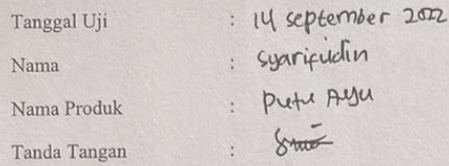 Tanggal Uji : 14 september 2022
Nama : Syarifudin
Nama Produk : Putu Ayu
Tanda Tangan :